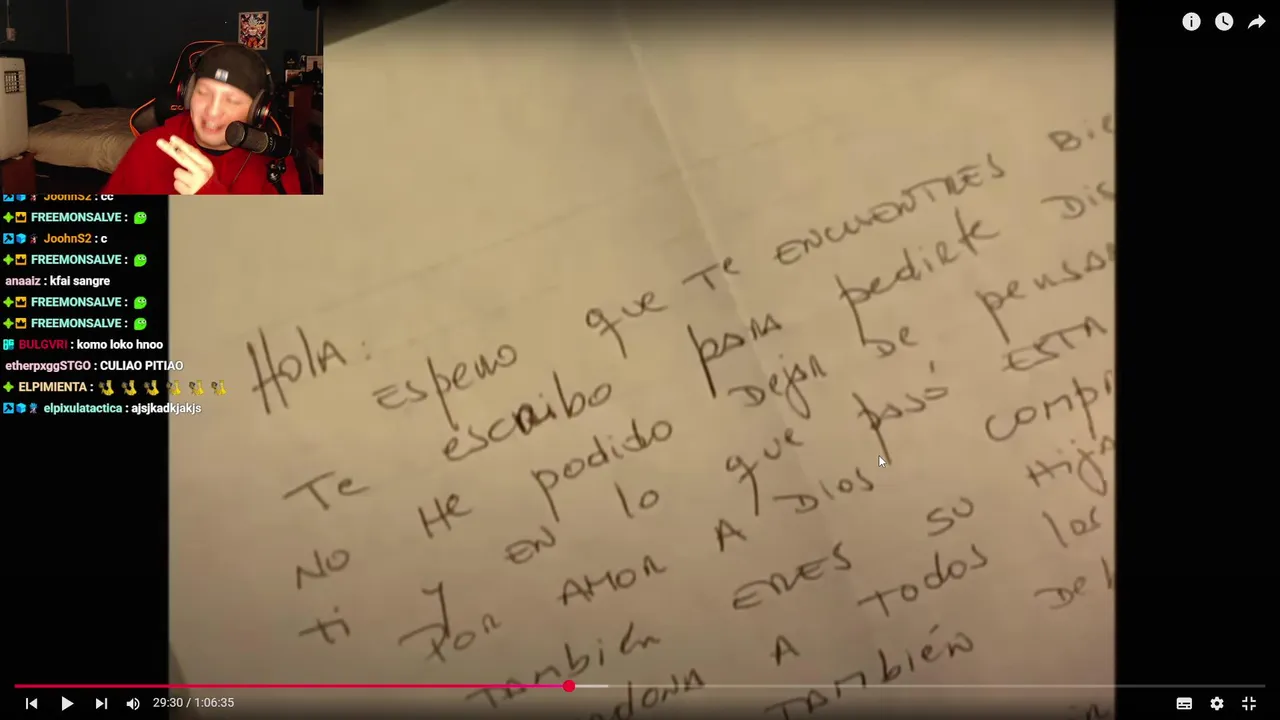 JoohnS2 : cc
FREEMONSALVE :
JoohnS2 : c
FREEMONSALVE :
anaaiz : kfai sangre
FREEMONSALVE :
FREEMONSALVE :
BULGVRI : komo loko hnoo
etherpxggSTGO : CULIAO PITIAO
ELPIMIENTA :
elpixulatactica : ajsjkadkjakjs
HOLA:
ESPERO que Te ENCUENTRES Bie
Te escribo para pedirte Dis
NO He podido DEJAR De pensar
ti y EN lo que pasó ESTA
POR AMOR A DIOS compr
TAMBIÉN ERES SU HIJA
dona A TODOS los
TAMBIÉN De
29:30 / 1:06:35